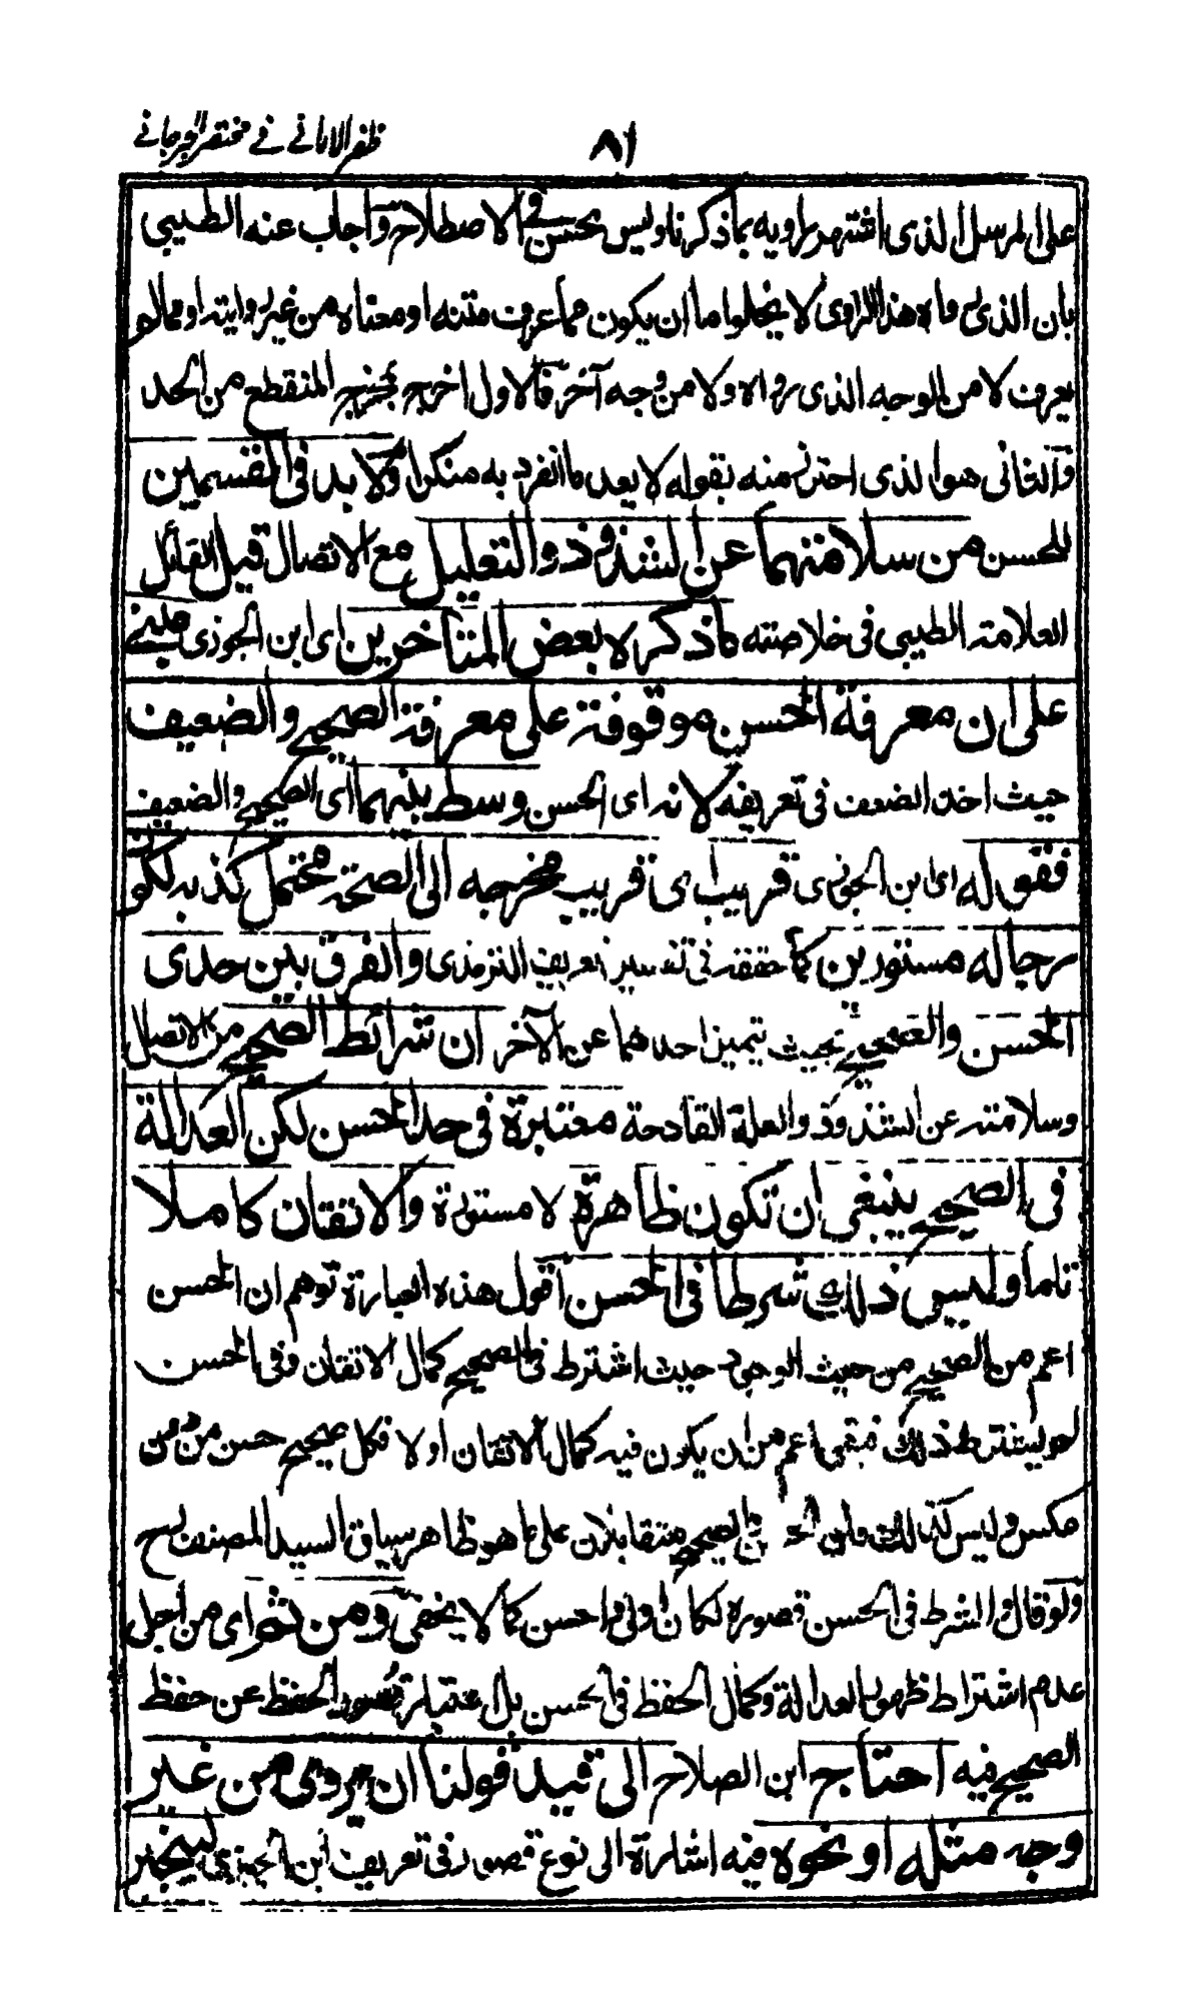 ظفر الامانی فے مختصر الجرجانے
٨١
على المرسل الذى اشتهر راويه بما ذكرنا وليس بحسن فى الاصطلاح واجاب عنه الطيبى
بان الذى رواه هذا الراوى لا يخلو اما ان يكون مما عرف متنه او معناه من غير روايته او مما لم
يعرف لا من الوجه الذى رواه ولا من وجه آخر فالاول اخرج بخروج المنقطع من الحد
والثانى هو الذى احترز منه بقوله لا يعد ما انفرد به منكرا ولا بد فى القسمين
للحسن من سلامتهما عن الشذوذ والتعليل مع الاتصال قيل القائل
العلامة الطيبى فى خلاصته ما ذكره بعض المتأخرين اى ابن الجوزى مبنى
على ان معرفة الحسن موقوفة على معرفة الصحيح والضعيف
حيث اخذ الضعف فى تعريفه لانه اى الحسن وسط بينهما اى الصحيح والضعيف
فقوله اى ابن الجوزى قريب اى قريب مخرجه الى الصحة محتمل كذبه لكون
رجاله مستورين كما حققه فى تفسير تعريف الترمذى والفرق بين حدى
الحسن والصحيح بحيث يتميز احدهما عن الآخر ان شرائط الصحيح من الاتصال
وسلامته عن الشذوذ والعلة القادحة معتبرة فى حد الحسن لكن العدالة
فى الصحيح ينبغى ان تكون ظاهرة لا مستورة والاتقان كاملا
تاما وليس ذلك شرطا فى الحسن اقول هذه العبارة توهم ان الحسن
اعم من الصحيح من حيث الوجود حيث اشترط فى الصحيح كمال الاتقان وفى الحسن
لم يشترط ذلك فبقى اعم من ان يكون فيه كمال الاتقان او لا فكل صحيح حسن من دون
عكس وليس كذلك فان الصحيح متقابلان على ما هو ظاهر سياق السيد المصنف
ولو قال والشرط فى الحسن قصوره لكان اولى واحسن كما لا يخفى ومن ثم اى من اجل
عدم اشتراط ظهور العدالة وكمال الحفظ فى الحسن بل اعتبار قصور الحفظ عن حفظ
الصحيح فيه احتاج ابن الصلاح الى قيد قولنا ان يروى من غير
وجه مثله او نحوه فيه اشارة الى نوع قصور فى تعريف ابن الجوزى لينجبر